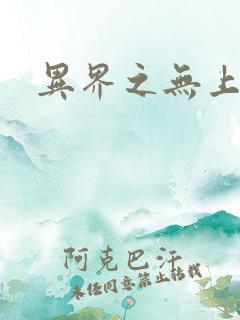 異界之無上
阿克巴汗
未经同意禁止转载